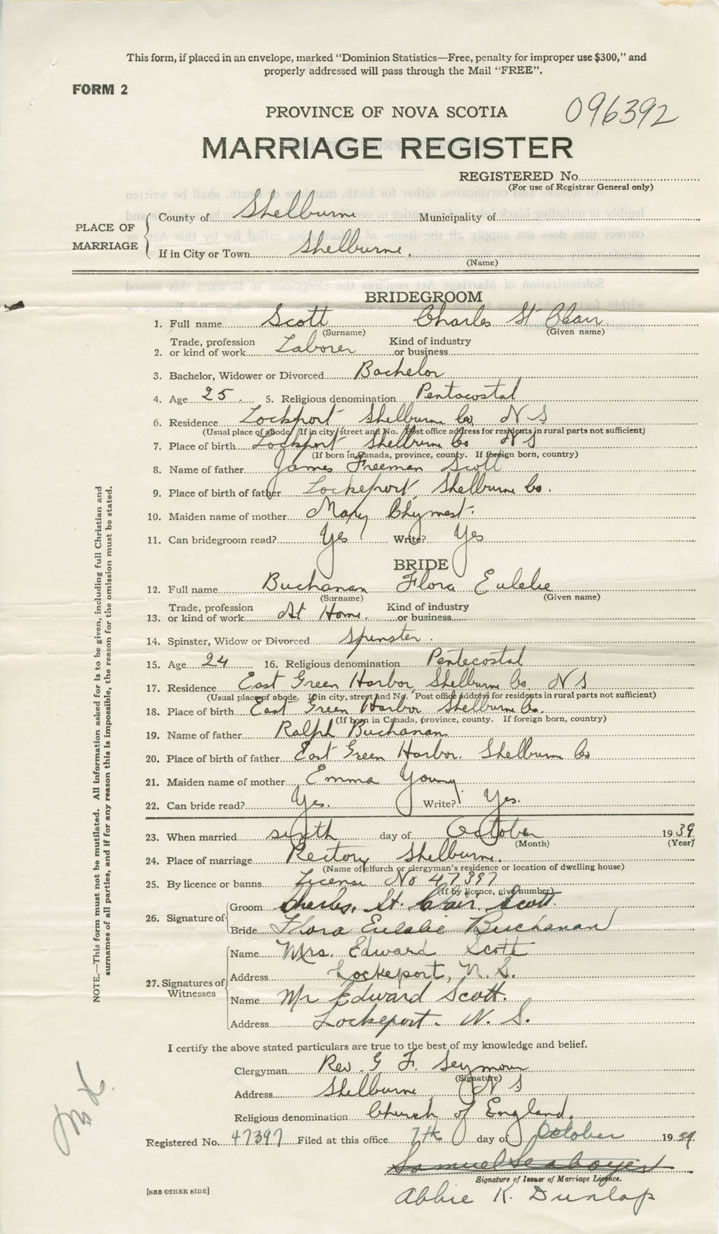 This form, if placed in an envelope, marked "Dominion Statistics—Free, penalty for improper use $300," and
properly addressed will pass through the Mail "FREE".
FORM 2
PROVINCE OF NOVA SCOTIA 096392
MARRIAGE REGISTER
REGISTERED No.
(For use of Registrar General only)
PLACE OF MARRIAGE
County of Shelburne Municipality of
If in City or Town Shelburne.
(Name)
BRIDEGROOM
1. Full name Scott Charles St Clair
(Surname) (Given name)
2. Trade, profession or kind of work Laborer Kind of industry or business
3. Bachelor, Widower or Divorced Bachelor
4. Age 25 5. Religious denomination Pentacostal
6. Residence Lockport Shelburn Co N S
(Usual place of abode. If in city, street and No. Post office address for residents in rural parts not sufficient)
7. Place of birth Lockport Shelburn Co N S
(If born in Canada, province, county. If foreign born, country)
8. Name of father James Freeman Scott
9. Place of birth of father Lockeport, Shelburn Co.
10. Maiden name of mother Mary
11. Can bridegroom read? Yes Write? Yes
BRIDE
12. Full name Buchanan Flora Eulelie
(Surname) (Given name)
13. Trade, profession or kind of work At Home. Kind of industry or business
14. Spinster, Widow or Divorced Spinster.
15. Age 24 16. Religious denomination Pentecostal
17. Residence East Green Harbor Shelburn Co N S
(Usual place of abode. If in city, street and No. Post office address for residents in rural parts not sufficient)
18. Place of birth East Green Harbor Shelburn Co.
(If born in Canada, province, county. If foreign born, country)
19. Name of father Ralph Buchanan
20. Place of birth of father East Green Harbor. Shelburn Co
21. Maiden name of mother Emma Young
22. Can bride read? Yes. Write? Yes.
23. When married sixth day of October 1939
(Month) (Year)
24. Place of marriage Rectory Shelburne.
(Name of church or clergyman's residence or location of dwelling house)
25. By licence or banns License No 47397
(If by licence, give number)
26. Signature of
Groom Charles. St. Clair. Scott
Bride Flora Eulalie Buchanan
27. Signatures of Witnesses
Name Mrs. Edward Scott
Address Lockeport, N. S.
Name Mr Edward Scott.
Address Lockeport. N. S.
I certify the above stated particulars are true to the best of my knowledge and belief.
Clergyman Rev. G F. Seymour
(Signature)
Address Shelburne N S
Religious denomination Church of England.
Registered No. 47397 Filed at this office 7th day of October 1939
Samuel Seaboyer
Signature of Issuer of Marriage Licence.
Abbie K. Dunlap
[SEE OTHER SIDE]
NOTE.—This form must not be mutilated. All information asked for is to be given, including full Christian and
surnames of all parties, and if for any reason this is impossible, the reason for the omission must be stated.